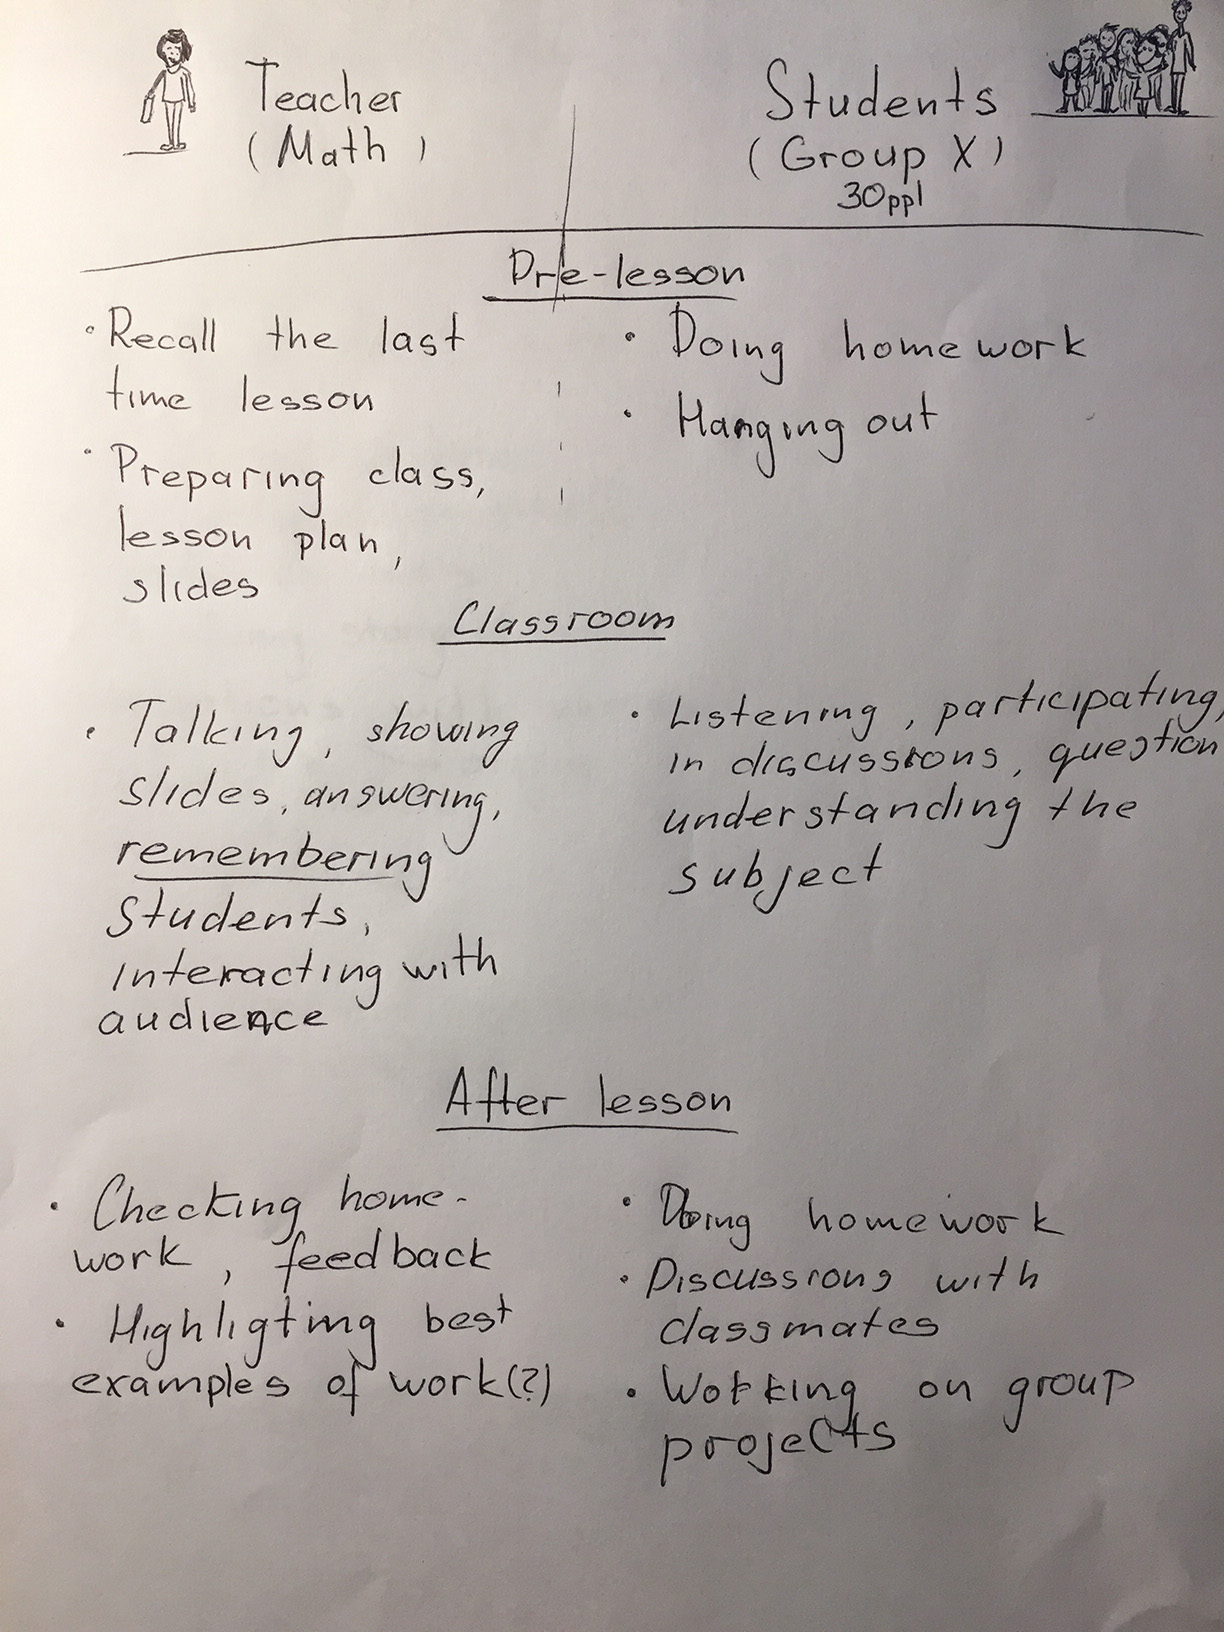 Teacher
(Math)
Students
(Group X)
30ppl
Pre-lesson
• Recall the last
time lesson
• Preparing class,
lesson plan,
slides
• Doing homework
• Hanging out
Classroom
• Talking, showing
slides, answering,
remembering
Students,
interacting with
audience
• Listening, participating,
in discussions, question
understanding the
subject
After lesson
• Checking home-
work, feedback
• Highligting best
examples of work(?)
• Doing homework
• Discussions with
classmates
• Working on group
projects